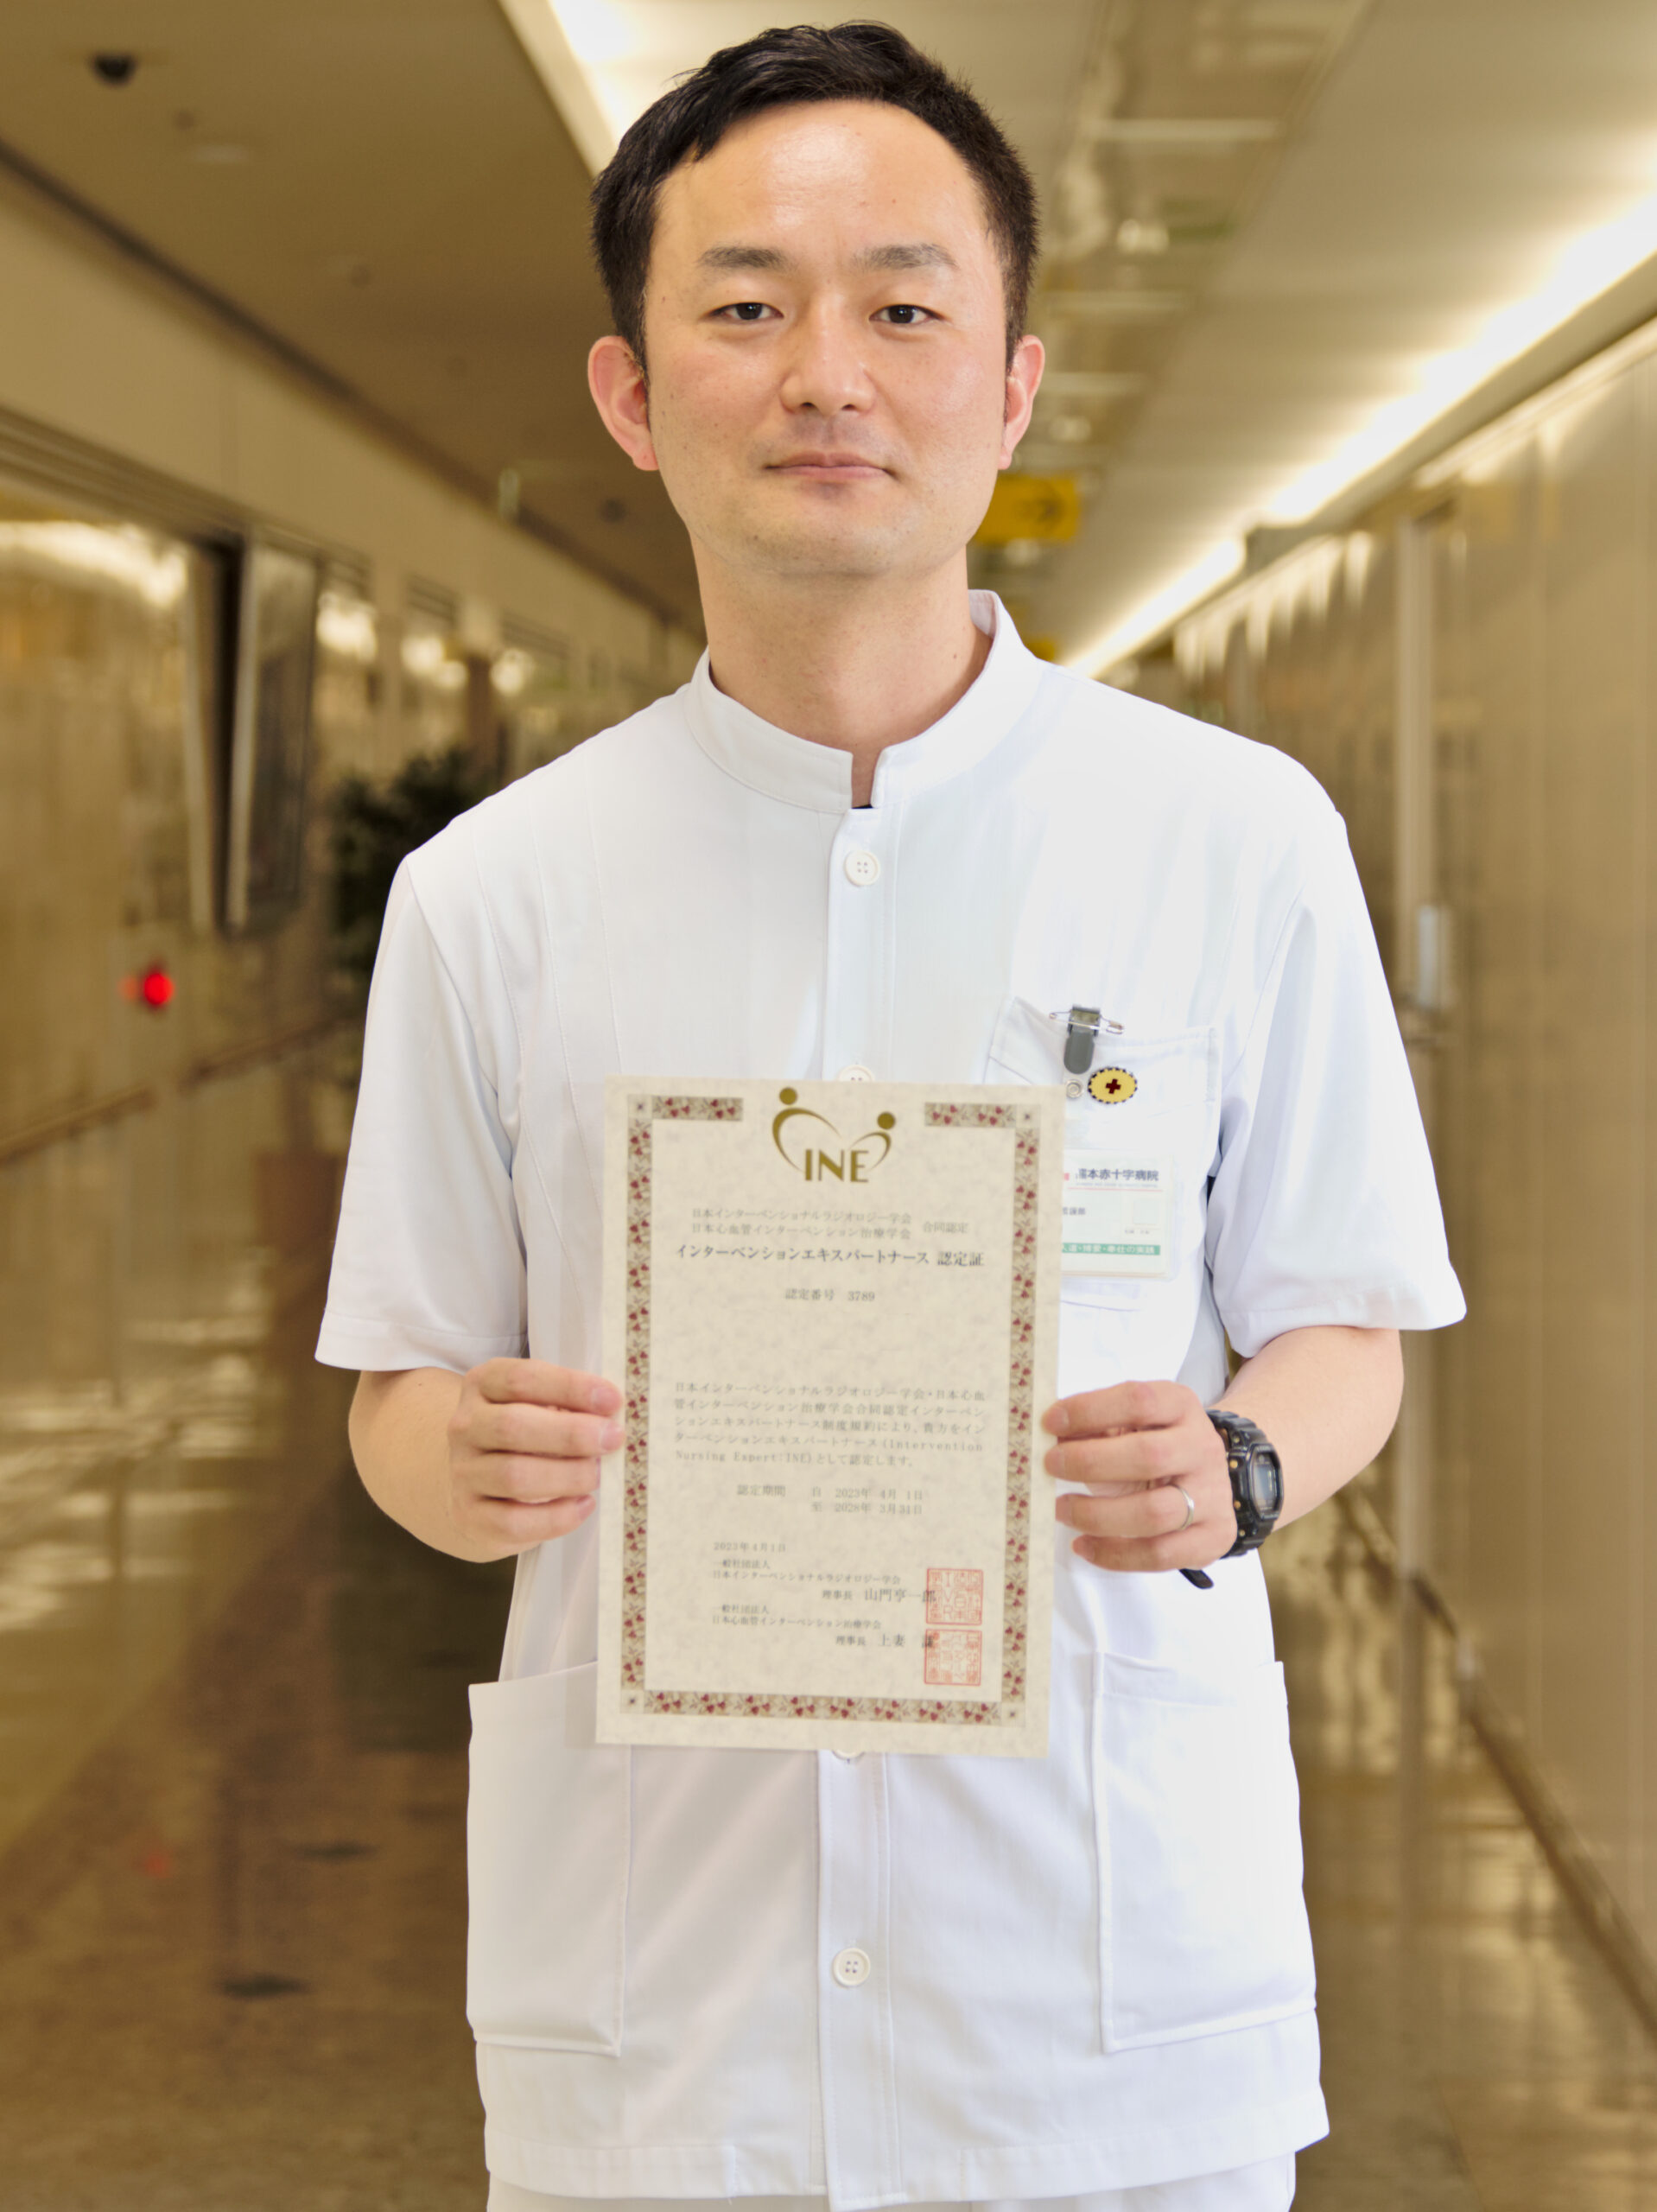 INE
日本インターベンショナルラジオロジー学会
日本心血管インターベンション治療学会 合同認定
インターベンションエキスパートナース 認定証
認定番号 3789
日本インターベンショナルラジオロジー学会・日本心血
管インターベンション治療学会合同認定インターベン
ションエキスパートナース制度規約により、貴方をイン
ターベンションエキスパートナース(Intervention
Nursing Expert:INE)として認定します。
認定期間 自 2023年 4月 1日
至 2028年 3月31日
2023年4月1日
一般社団法人
日本インターベンショナルラジオロジー学会
理事長 山門亨一郎
一般社団法人
日本心血管インターベンション治療学会
理事長 上妻
本赤十字病院
看護部
人道・博愛・奉仕の実践